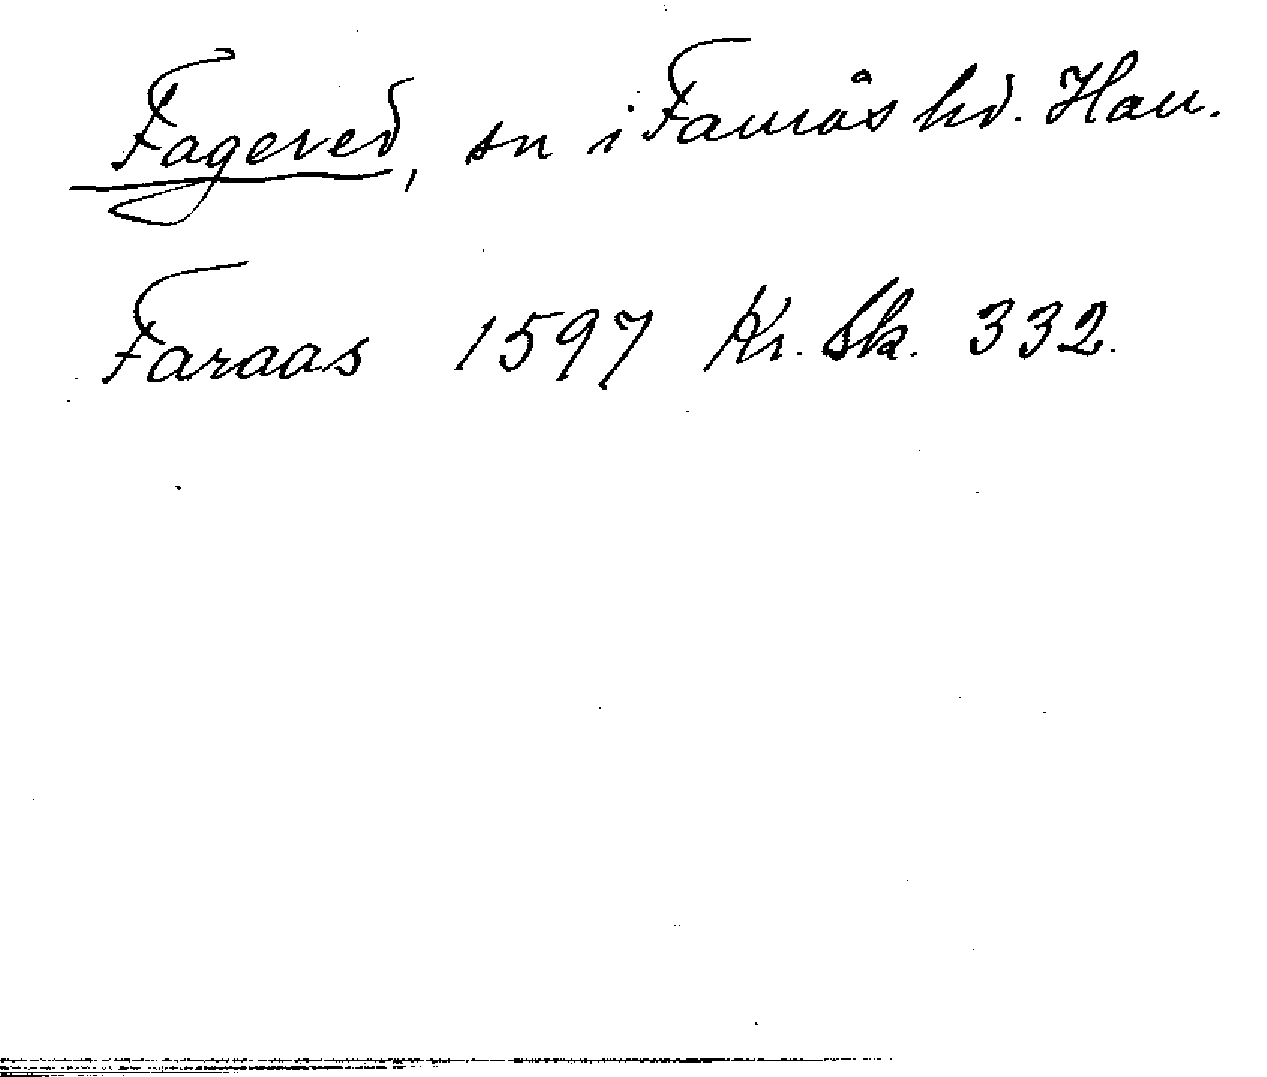 Fagered, sn i Faurås hd. Hall.
Faraas 1597 Kr. Sk. 332.